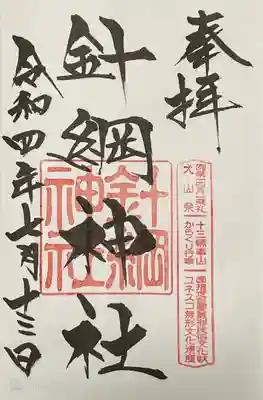 奉拝
針綱神社
針綱
神社
令和四年七月十三日
犬山祭
十三輌車山
からくり行事
国指定重要無形民俗文化財
ユネスコ無形文化遺産